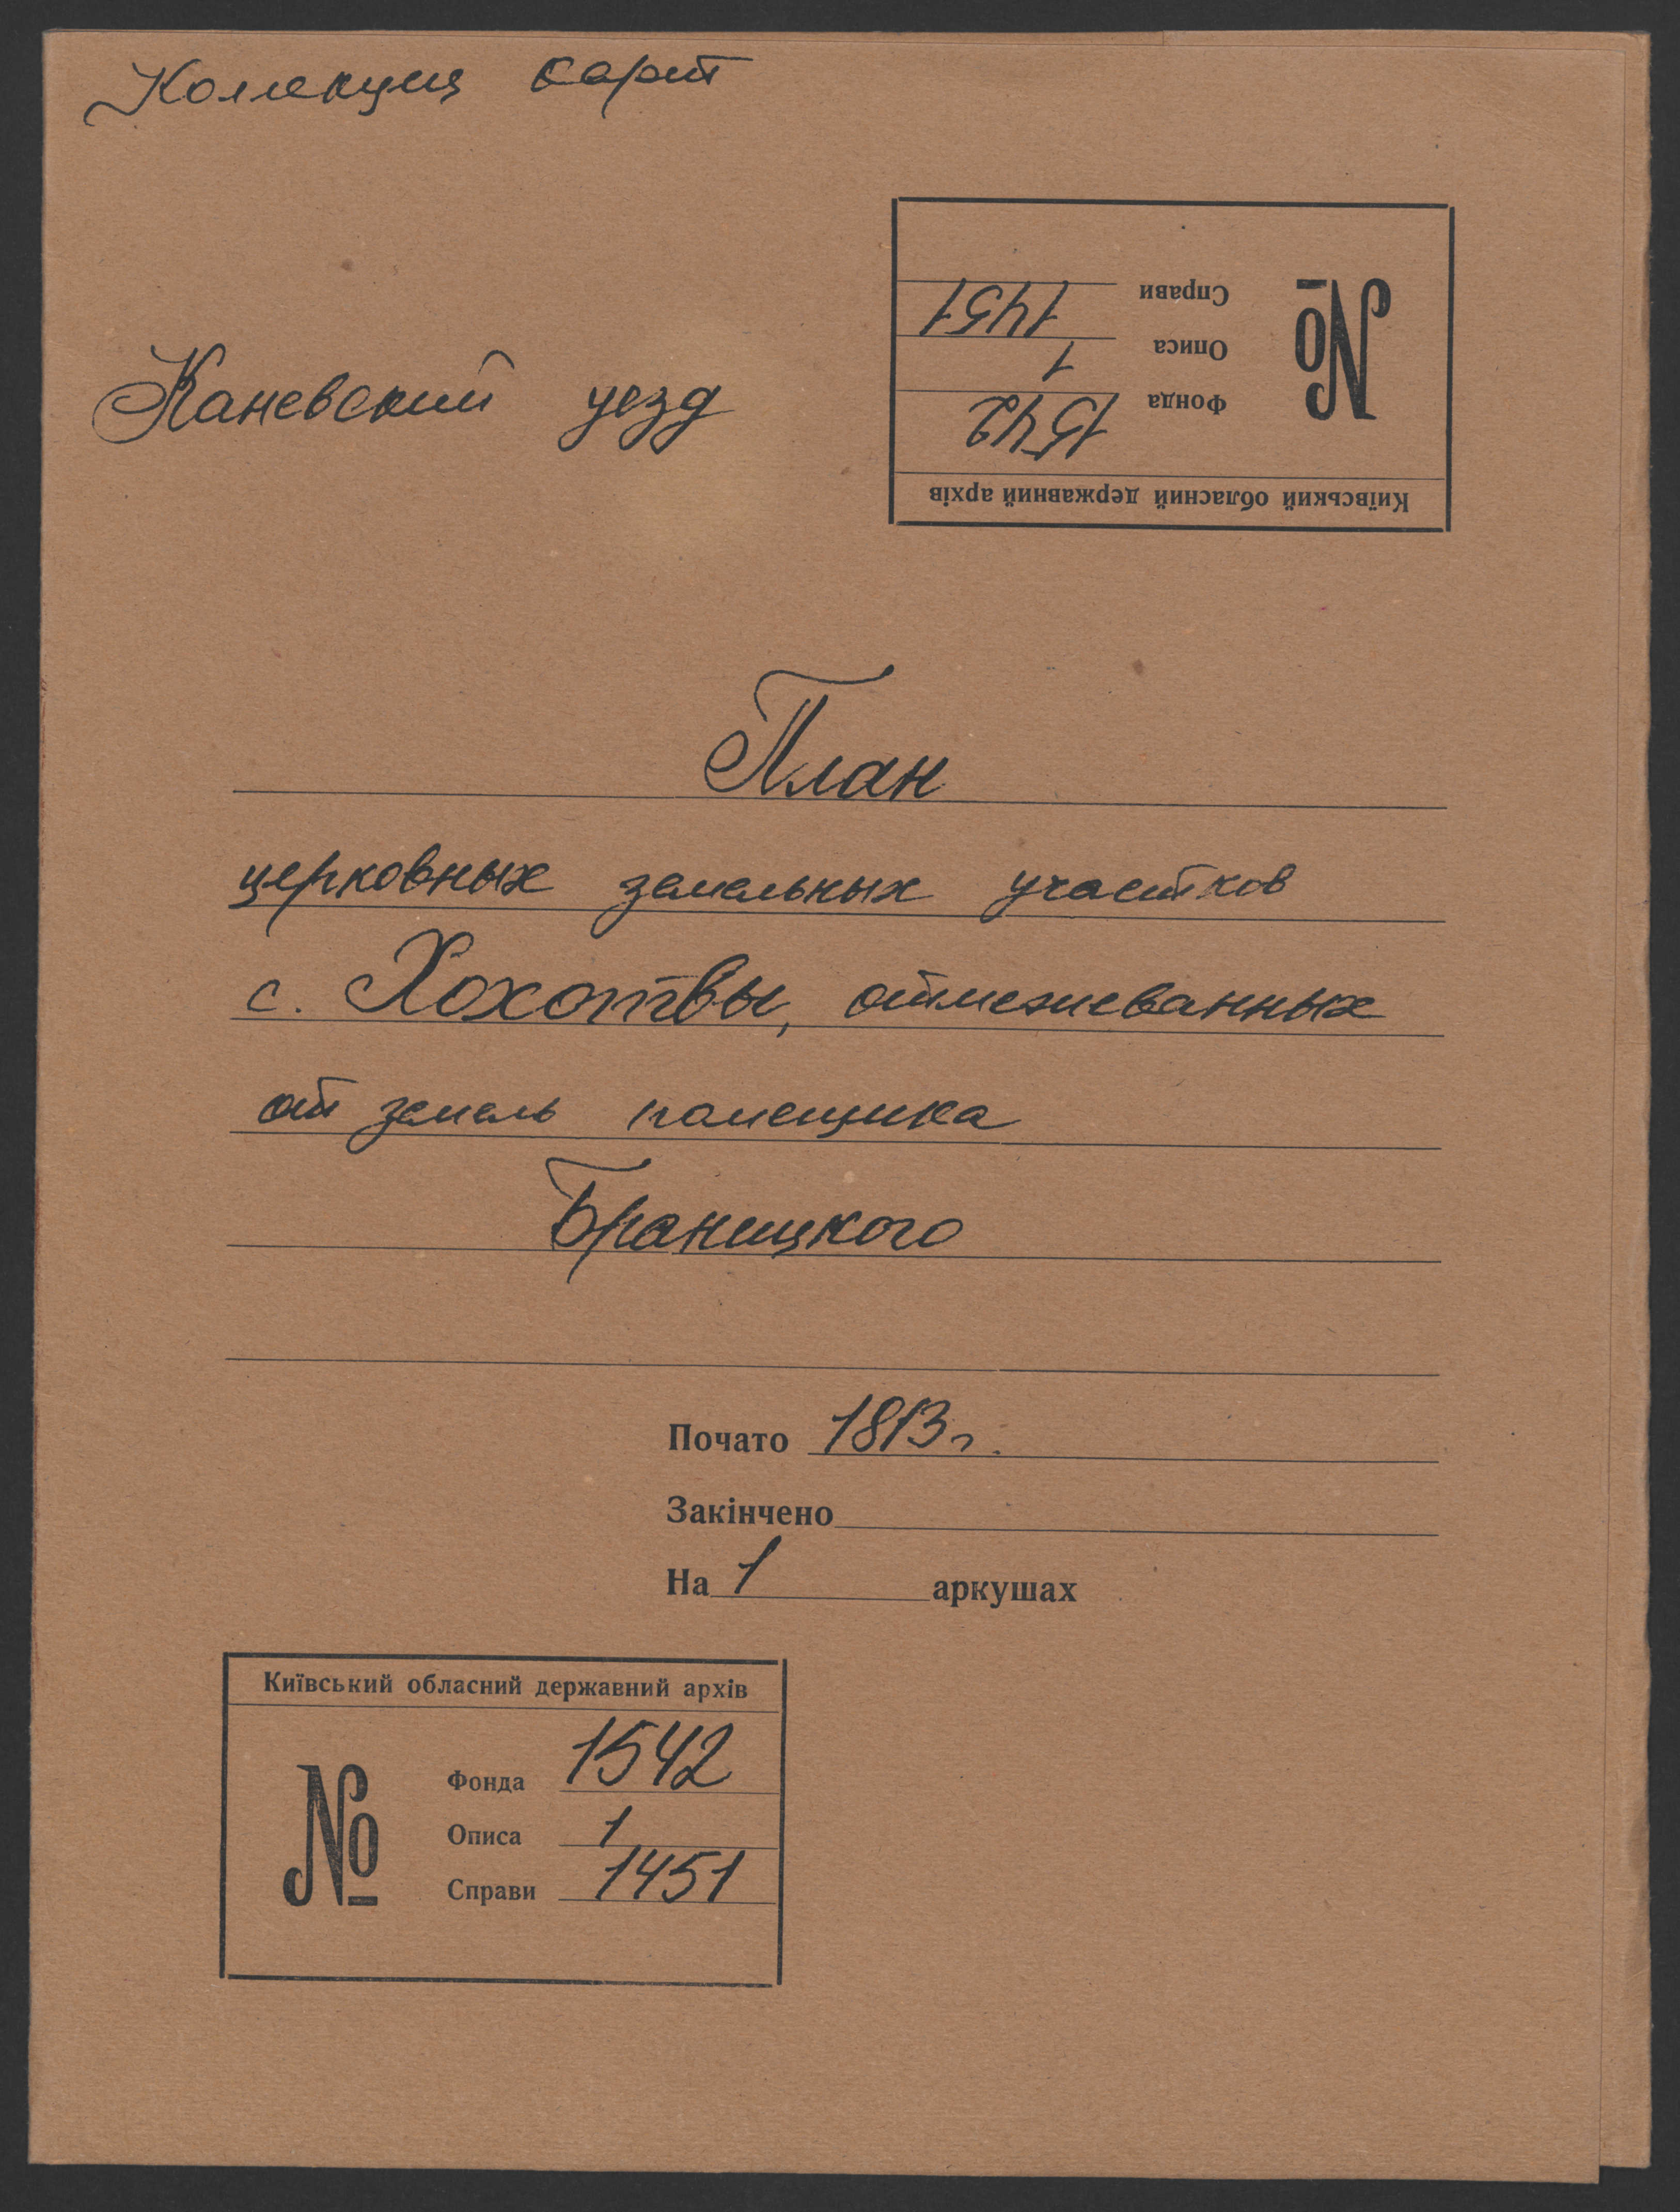 Коллекция карт
Каневский уезд
Київський обласний державний архів
№
Фонда 1542
Описа 1
Справи 1451
План
церковных земельных участков
с. Хохотвы, отмежеванных
от земель помещика
Браницкого
Почато 1813 г.
Закінчено
На 1 аркушах
Київський обласний державний архів
№
Фонда 1542
Описа 1
Справи 1451